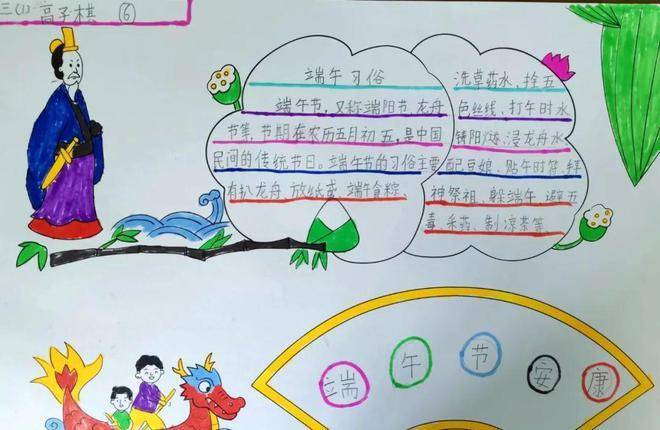 三(1) 高子棋 ⑥
端午习俗
端午节,又称端阳节、龙舟
节等,节期在农历五月初五,是中国
民间的传统节日。端午节的习俗主要
有扒龙舟、放纸鸢、端午食粽、
洗草药水、拴五
色丝线、打午时水
浸龙舟水
配豆娘、贴午时符、拜
神祭祖、躲端午、避五
毒、采药、制凉茶等。
端午节安康